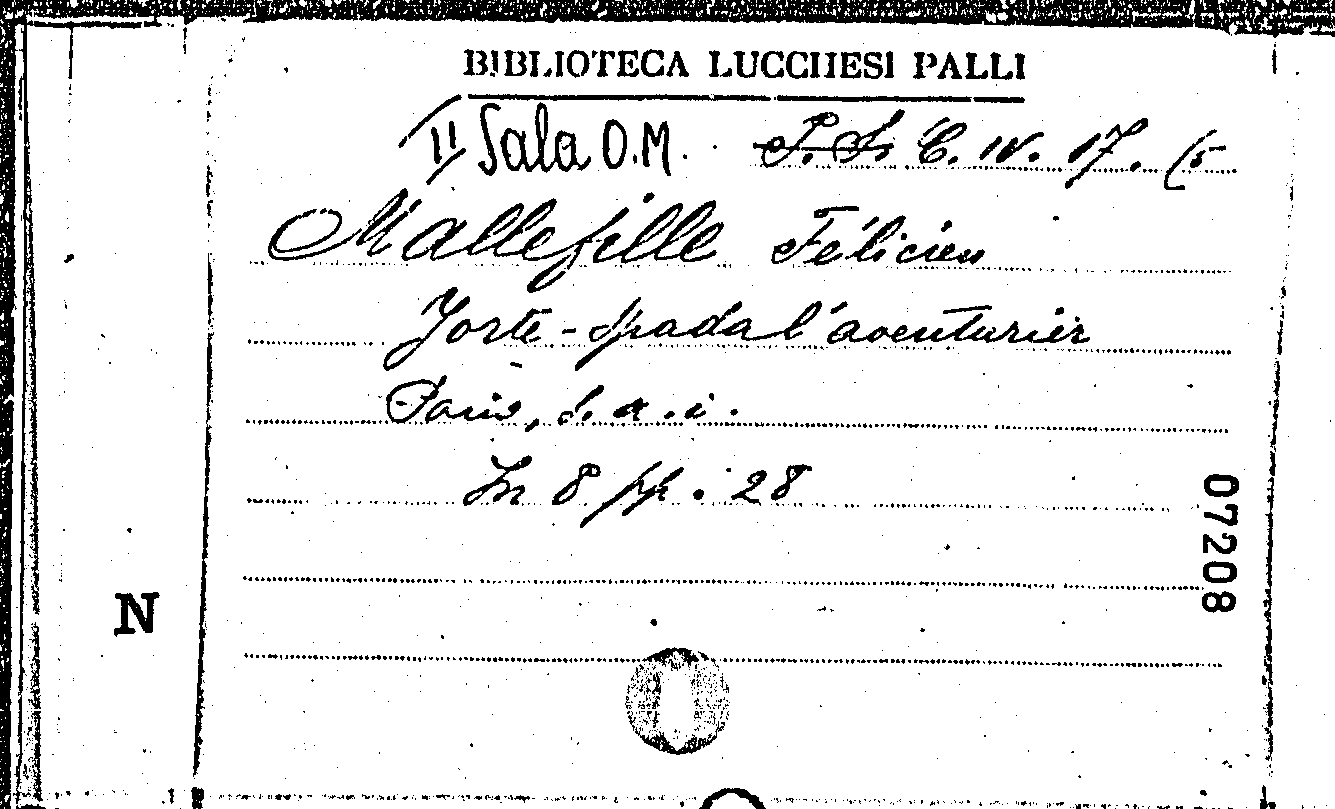 BIBLIOTECA LUCCHESI PALLI
II Sala O.M. P.S. C. IV. 17. (5
Mallefille Félicien
Forte-Spada l'aventurier
Paris, s.a.i.
In 8 pp. 28
07208
N